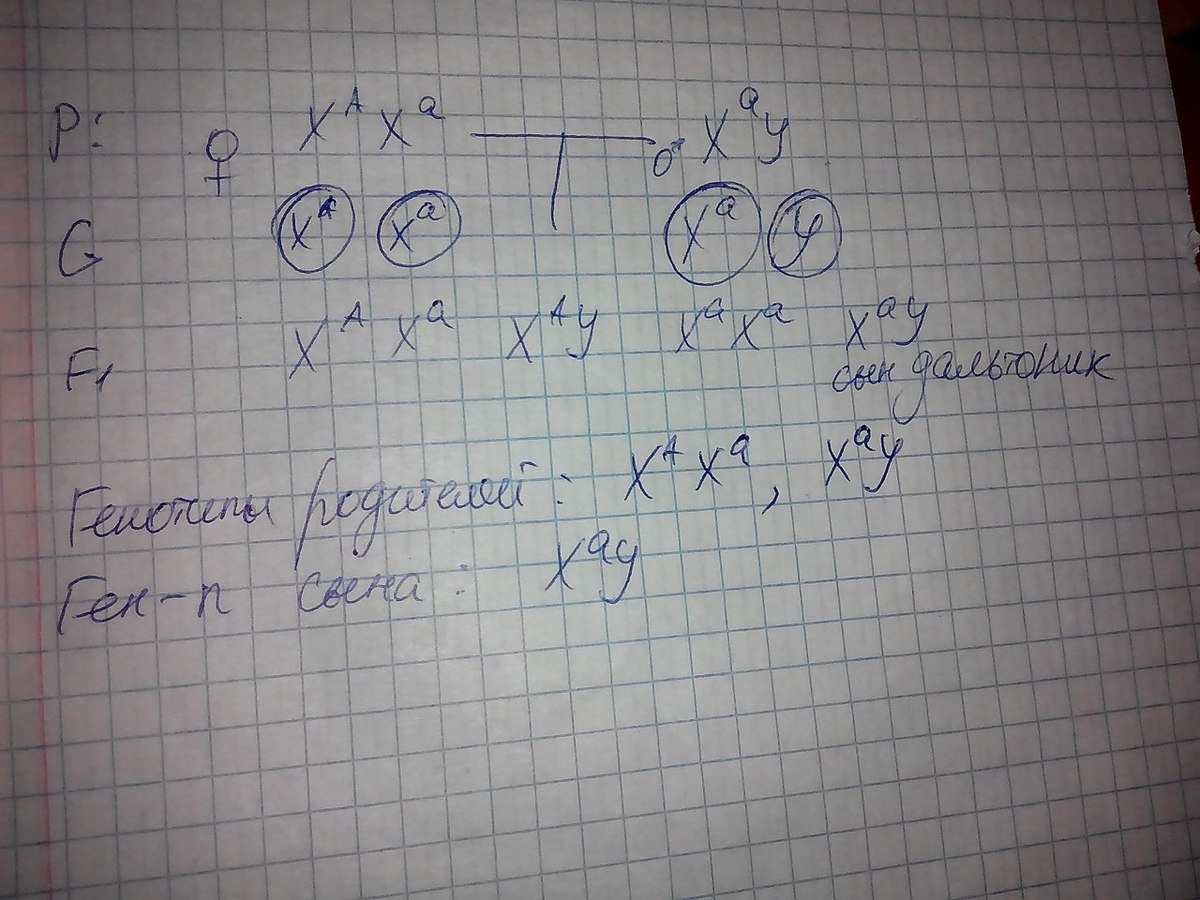 P: ♀ X^A X^a ♂ X^a y
G X^A X^a X^a y
F1 X^A X^a X^A y X^a X^a X^a y
сын дальтоник
Генотипы родителей: X^A X^a, X^a y
Ген-п сына: X^a y